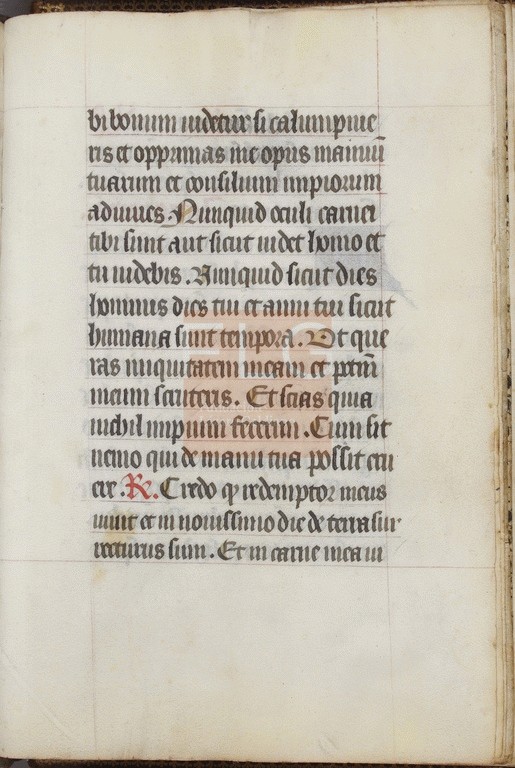 bi bonum videtur si calumpnie
ris et opprimas me opus manuū
tuarum et consilium impiorum
adiuves. Nunquid oculi carnei
tibi sunt aut sicut videt homo et
tu videbis. Nunquid sicut dies
hominis dies tui et anni tui sicut
humana sunt tempora. Ut que
ras iniquitatem meam et pctm̄
meum scruteris. Et scias quia
nichil impium fecerim. Cum sit
nemo qui de manu tua possit eru
ere. R. Credo ꝙ redemptor meus
vivit et in novissimo die de terra sur
recturus sum. Et in carne mea vi
FLG